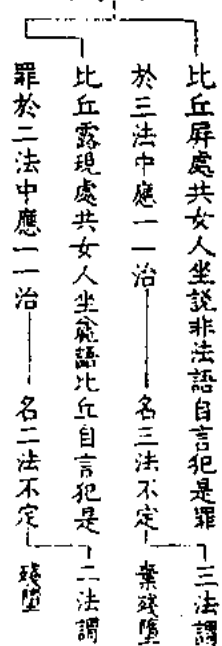 比丘屏處共女人坐説非法語自言犯是罪
於三法中應一一治——名三法不定
三法謂
棄殘墮
比丘露現處共女人坐麁語比丘自言犯是
罪於二法中應一一治——名二法不定
二法謂
殘墮